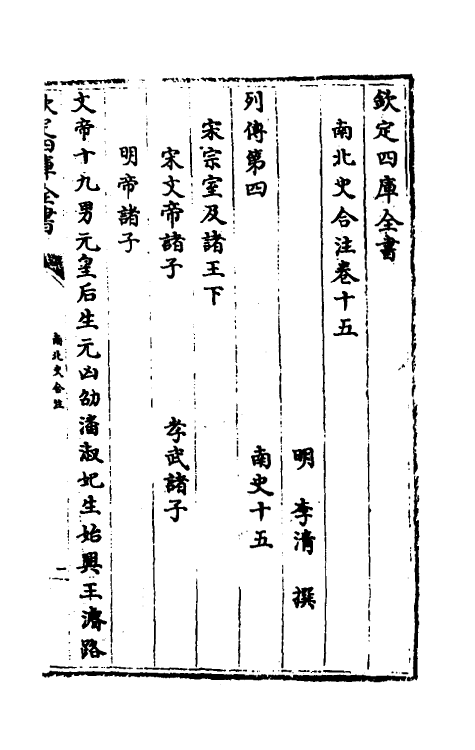 欽定四庫全書
南北史合注卷十五
明 李清 撰
列傳第四 南史十五
宋宗室及諸王下
宋文帝諸子 孝武諸子
明帝諸子
文帝十九男元皇后生元凶劭潘淑妃生始興王濬路
欽定四庫全書
南北史合注
一